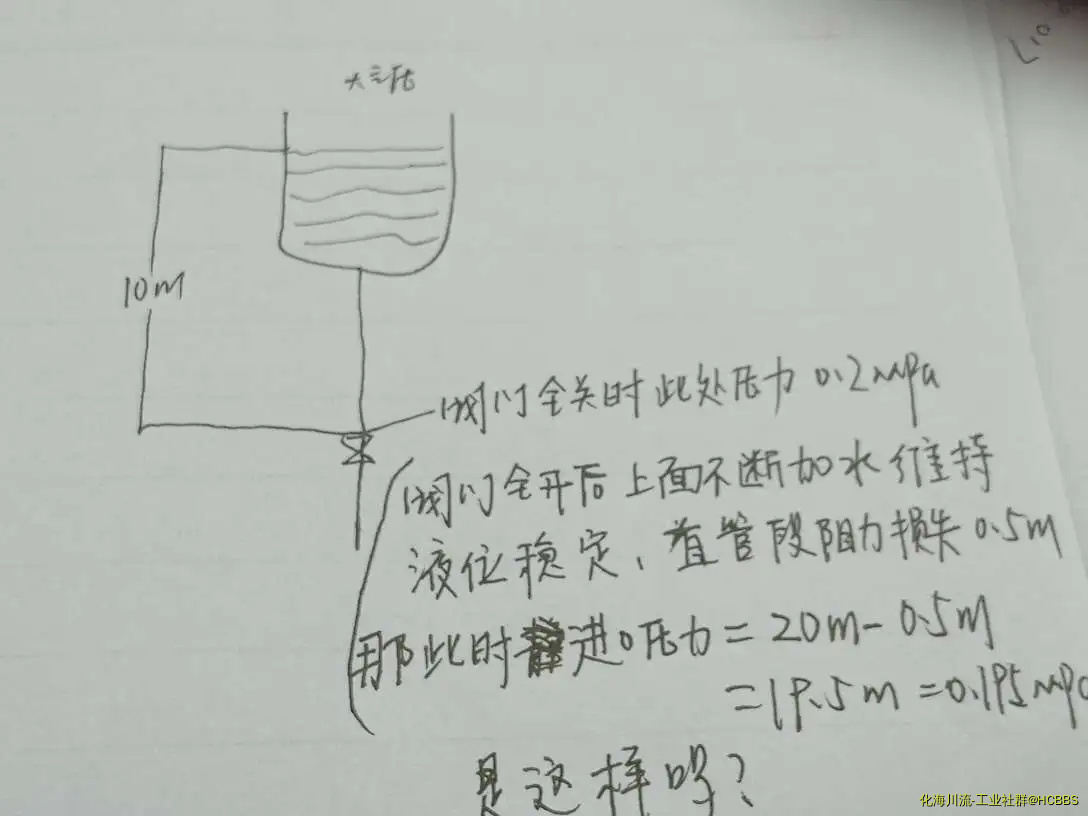 大气压
10m
阀门全关时此处压力 0.2MPa
阀门全开后上面不断加水维持
液位稳定，直管段阻力损失0.5m
那此时进口压力=20m-0.5m
=19.5m=0.195MPa
是这样吗？
化海川流-工业社群@HCBBS